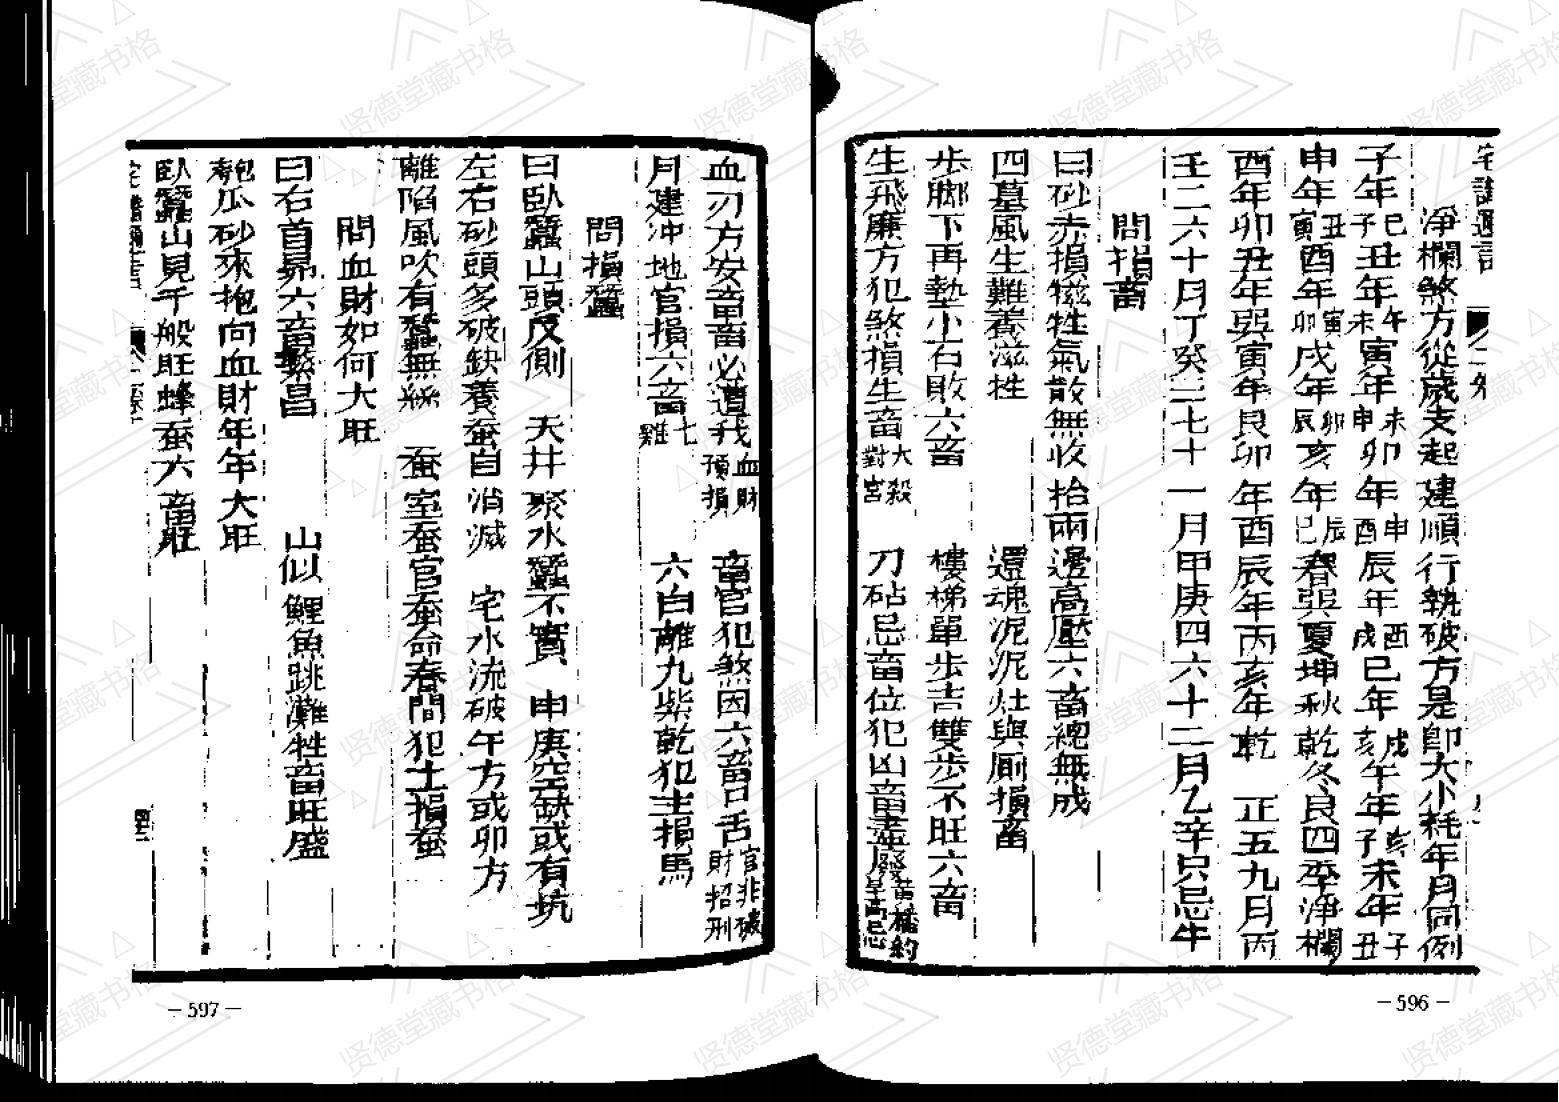 淨欄煞方從歲支起建順行執破方是即大小耗年月同例
子年巳子丑年午未寅年未申卯年申酉辰年酉戌巳年戌亥午年亥子未年子丑
申年丑寅酉年寅卯戌年卯辰亥年辰巳春巽夏坤秋乾冬艮四季淨欄
酉年卯丑年巽寅年艮卯年酉辰年丙亥年乾 正五九月丙
壬二六十月丁癸三七十一月甲庚四六十二月乙辛只忌牛
問損畜
曰砂赤損犠牲氣散無收拾兩邊高壓六畜總無成
四墓風生難養滋牲 還魂泥泥灶與厠損畜
步腳下再墊小石敗六畜 樓梯單步吉雙步不旺六畜
生飛廉方犯煞損生畜大殺對宮 刀砧忌畜位犯凶畜盡廢
— 596 —
血刃方安畜畜必遭我血財預損 畜官犯煞因六畜口舌官非破財招刑
月建冲地官損六畜七雞 六白離九紫乾犯主損馬
問損蠶
曰臥蠶山頭反側 天井聚水蠶不實 申庚空缺或有坑
左右砂頭多破缺養蚕自消滅 宅水流破午方或卯方
離陷風吹有蠶無絲 蚕室蚕官蚕命春間犯土損蚕
問血財如何大旺
曰右首昴六畜繁昌 山似鯉魚跳灘牲畜旺盛
匏瓜砂來抱向血財年年大旺
臥蠶山見千般旺蜂蚕六畜旺
— 597 —
贤德堂藏书格